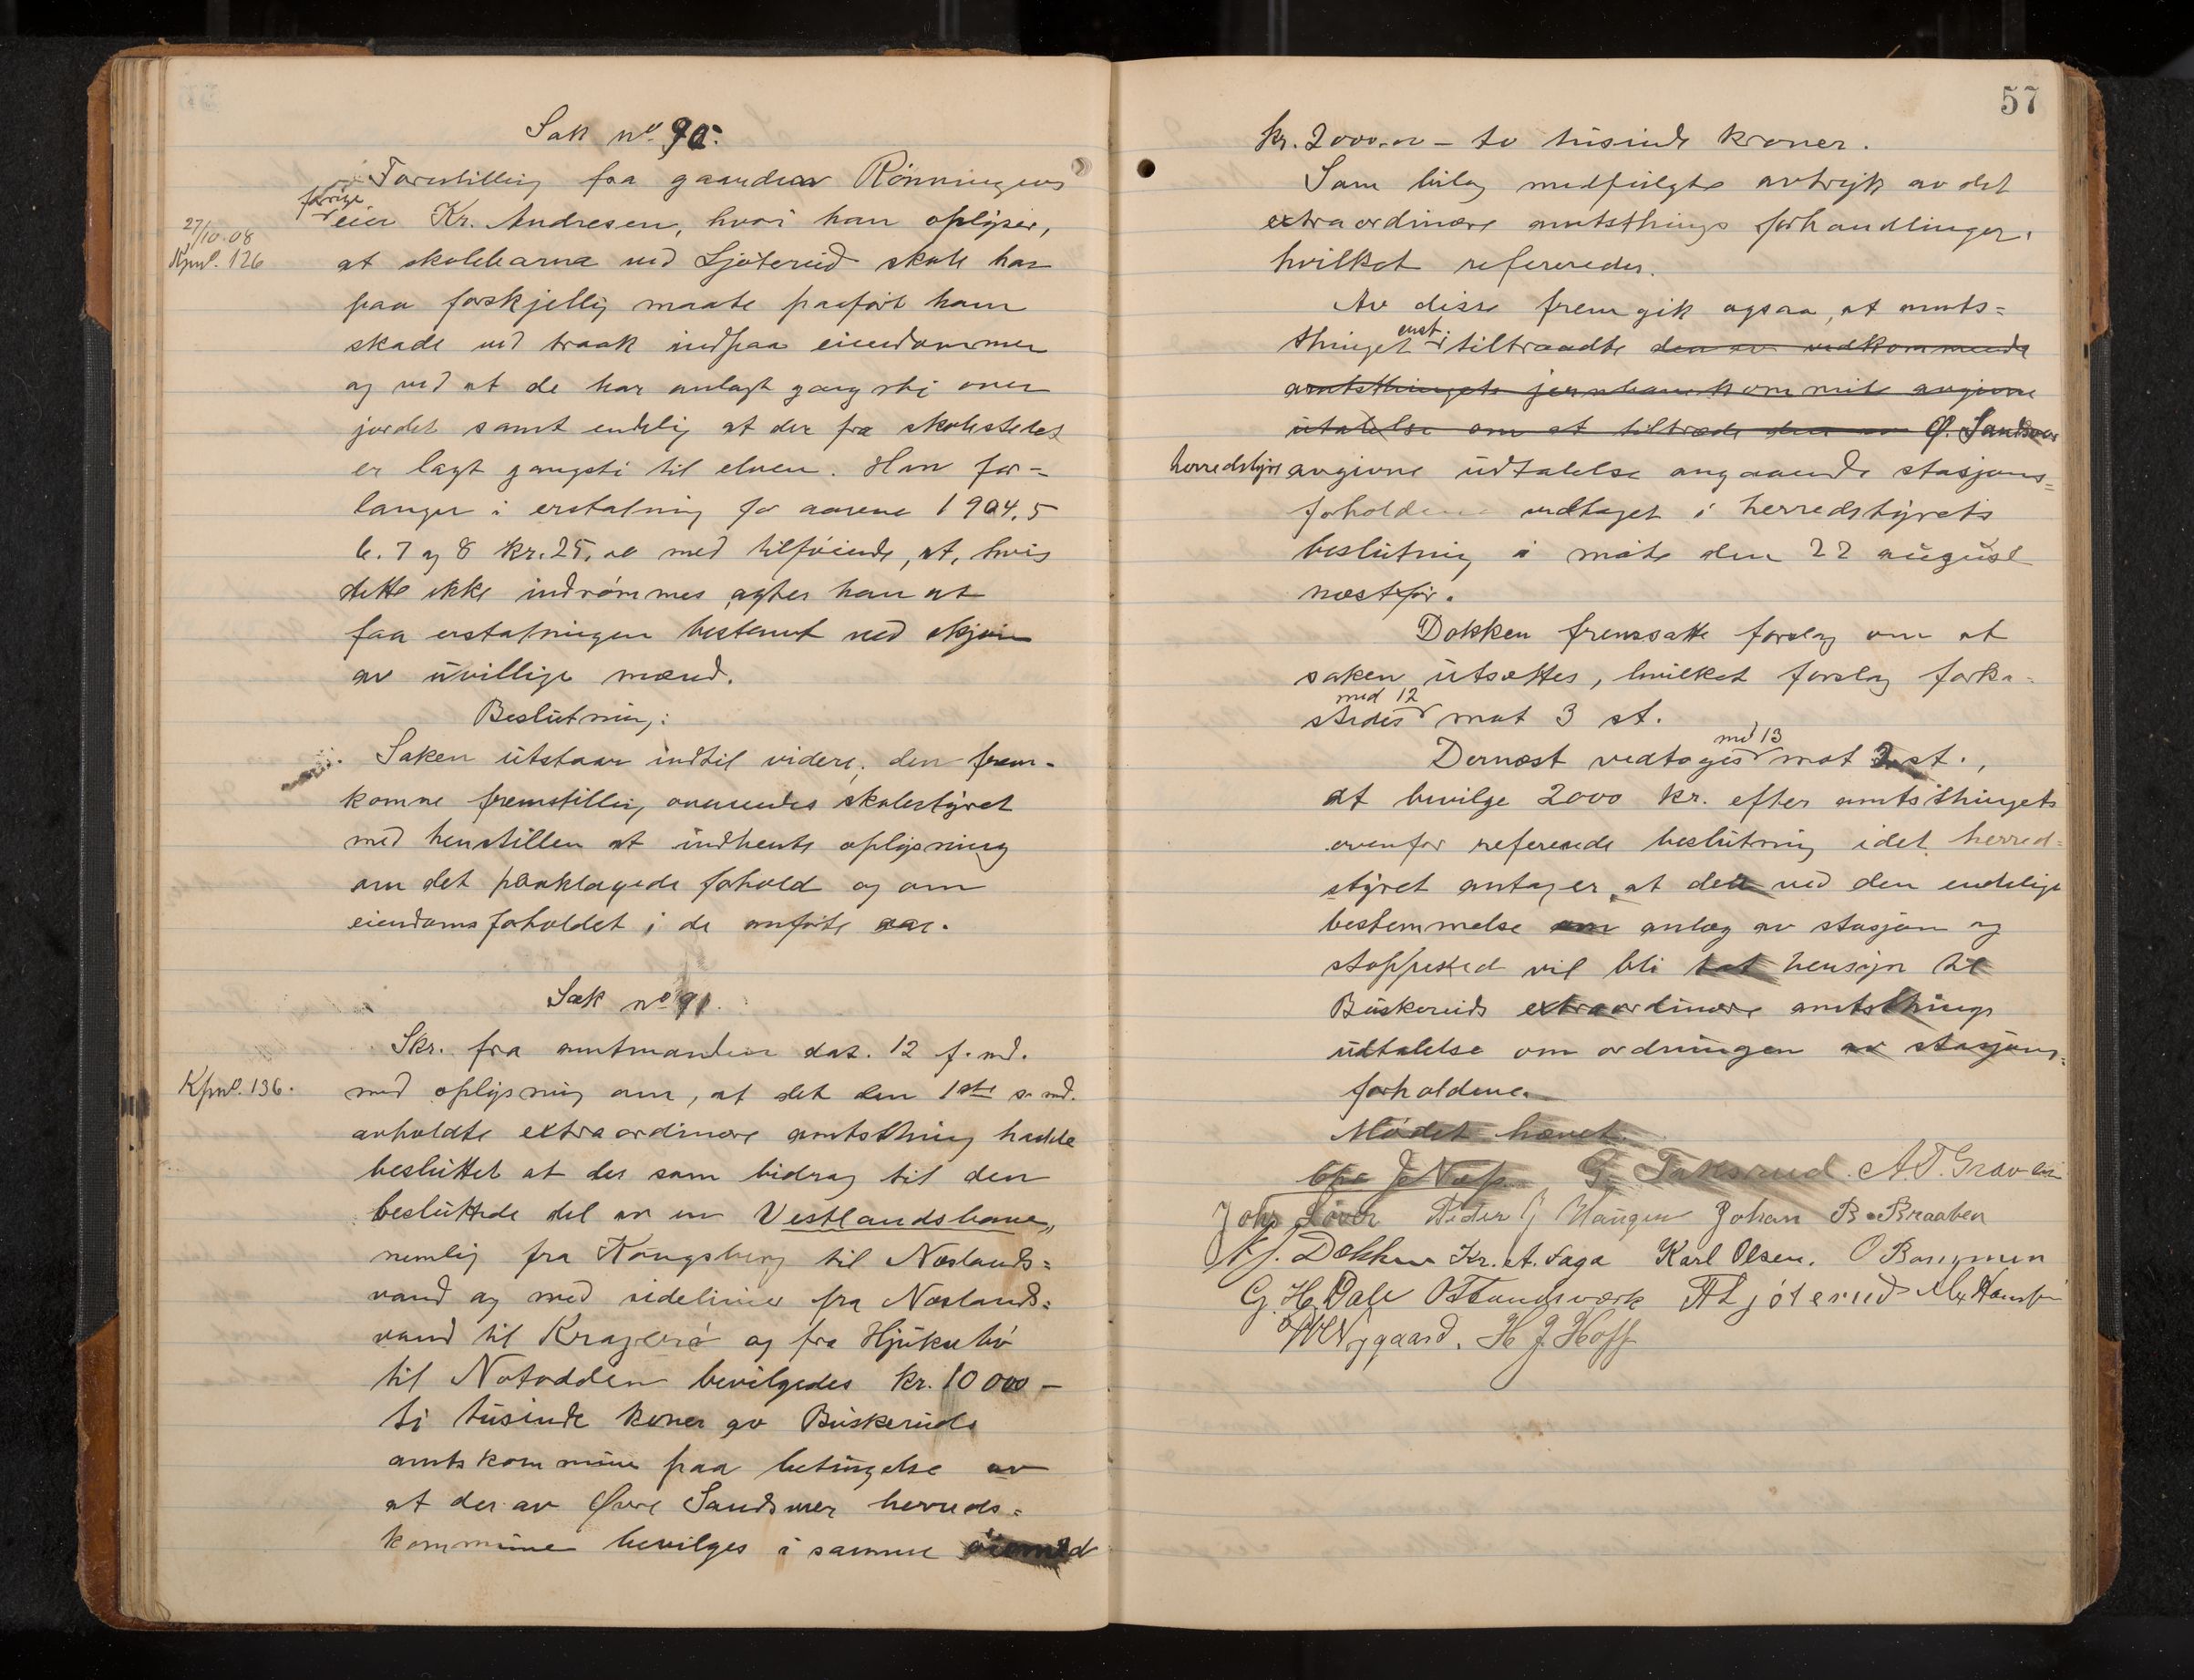 Sak no. 90.
Forestilling fra gaarden Rønningens
forrige
eier Kr. Andresen, hvori han oplyser,
27/10.08
Kpnl. 126
at skolebarna ved Ljøterud skole har
paa forskjellig maate paaført ham
skade ved traak indpaa eiendommen
og ved at de har anlagt gangsti over
jordet samt endelig at der fra skolestedet
er lagt gangsti til elven. Han for=
langer i erstatning for aarene 1904. 5
6. 7 og 8 kr. 25,00 med tilføiende, at, hvis
dette ikke indrømmes agter han at
faa erstatningen bestemt ved skjøn
av uvillige mænd.
Beslutning:
Saken utstaar indtil videre; den frem-
komne fremstilling oversendes skolestyret
med henstillen at indhente oplysning
om det paaklagede forhold og om
eiendomsforholdet i de anførte aar.
Sak no 91.
Skr. fra amtmanden dat. 12 f. md.
Kpnl. 136.
med oplysning om, at det den 1ste s. md.
avholdte extraordinære amtsthing hadde
besluttet at der som bidrag til den
besluttede del av en Vestlandsbane,
nemlig fra Kongsberg til Neslands=
vand og med sidelinier fra Neslands=
vand til Kragerø og fra Hjuksebø
til Notodden bevilgedes kr. 10 000 –
ti tusinde kroner av Buskeruds
amtskommune paa betingelse av
at der av Øvre Sandsvær herreds=
kommune bevilges i samme øiemed
57
kr. 2000.00 – to tusinde kroner.
Som bilag medfulgte avtryk av det
extraordinære amtsthings forhandlinger,
hvilket refereredes.
Av disse fremgik ogsaa, at amts=
enst.
thinget tiltraadte den av vedkommende
amtsthingets jernbanekommite avgivne
utalelse om at tiltræde den av Ø. Sandsvær
herredstyre avgivne udtalelse angaaende stasjons=
forholdene vedtaget i herredstyrets
beslutning i møte den 22 august
næstfør.
Dokken fremsatte forslag om at
saken utsættes, hvilket forslag forka=
med 12
stedes mot 3 st.
med 13
Dernæst vedtoges mot 2 st.,
at bevilge 2000 kr. efter amtsthingets
ovenfor refererede beslutning idet herred=
styret antager, at der ved den endelige
bestemmelse om anlæg av stasjon og
stoppested vil bli tat hensyn til
Buskeruds extraordinære amtsthings
udtalelse om ordningen av stasjons=
forholdene.
Mødet hævet.
G. Taksrud. A. T. Gravli
John Løver Peder G Haugen Johan B. Braaten
Dokken Kr. A. Saga Karl Olsen.
G. H. Dale O Sandsværk Ljøterud
Nygaard. H J. Hoff